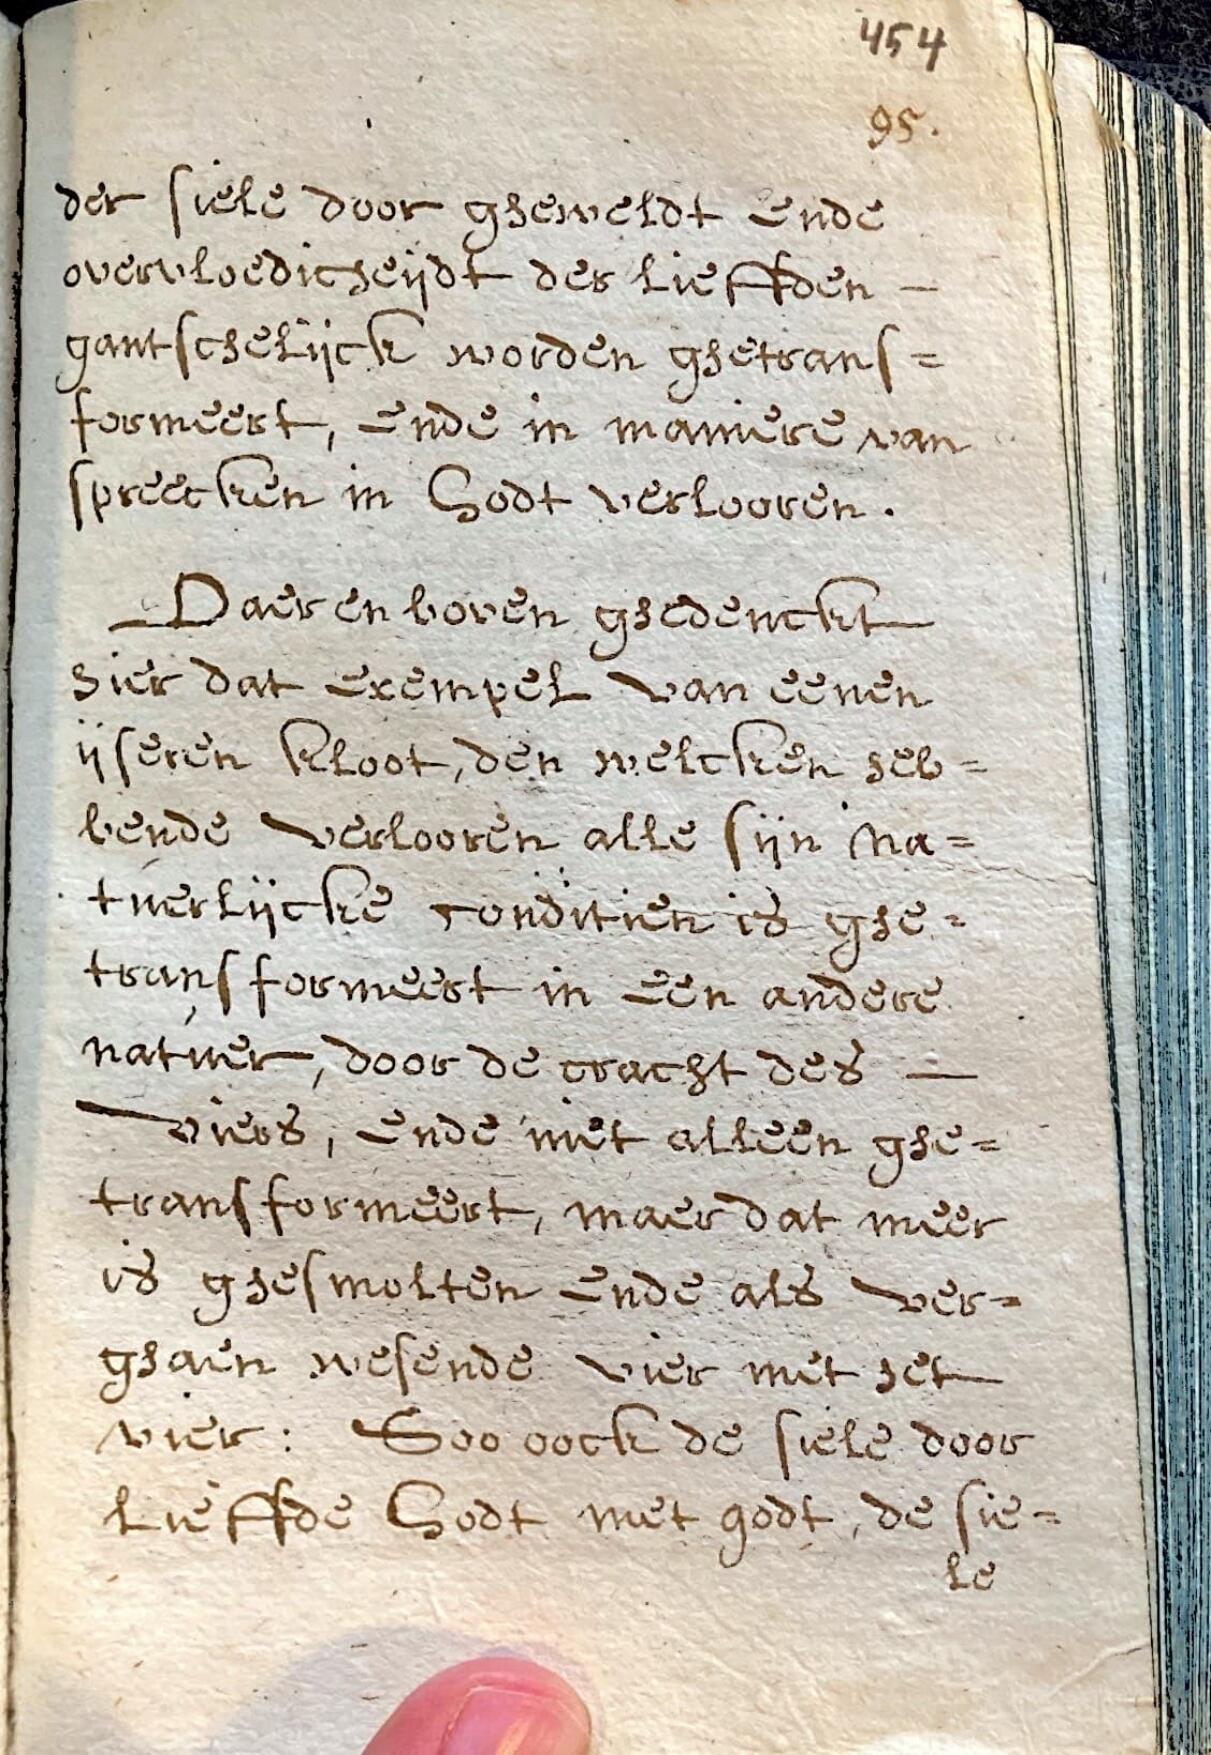 454
95.
der siele door gheweldt ende
overvloedicheijdt der lieffden –
gantschelijck worden ghetrans=
formeert, ende in maniere van
spreecken in Godt verlooren.
Daer en boven ghedenckt
hier dat exempel van eenen
ijseren kloot, den welcken heb=
bende verlooren alle sijn na=
tuerlijcke conditien is ghe=
transformeert in een andere
natuer, door de cracht des —
viers, ende niet alleen ghe=
transformeert, maer dat meer
is ghesmolten ende als ver=
ghaen wesende vier met het
vier: Soo oock de siele door
lieffde Godt met godt, de sie=
le